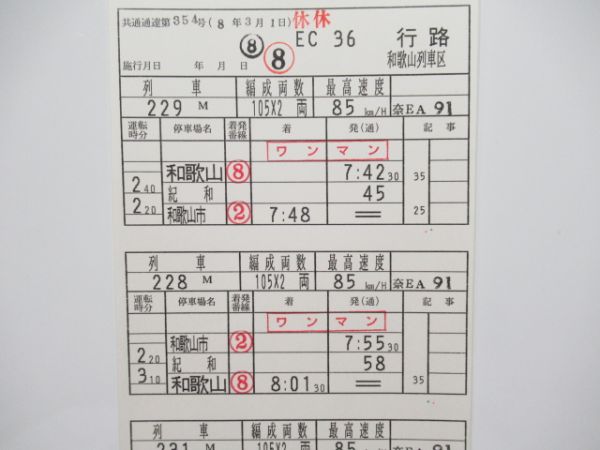 共通通達第354号(8年3月1日) 休休
⑧ ⑧ EC 36 行路
施行月日 年 月 日 和歌山列車区
列車 編成両数 最高速度
229 M 105X2 両 85 km/H 奈EA 91
運転時分 停車場名 着発番線 着 発(通) 記事
ワンマン
和歌山 ⑧ 7:42 30 35
2 40 紀和 45
2 20 和歌山市 ② 7:48 = 25
列車 編成両数 最高速度
228 M 105X2 両 85 km/H 奈EA 91
運転時分 停車場名 着発番線 着 発(通) 記事
ワンマン
和歌山市 ② 7:55 30
2 20 紀和 58
3 10 和歌山 ⑧ 8:01 30 = 35
列車 編成両数 最高速度
231 M 105X2 両 85 km/H 奈EA 91